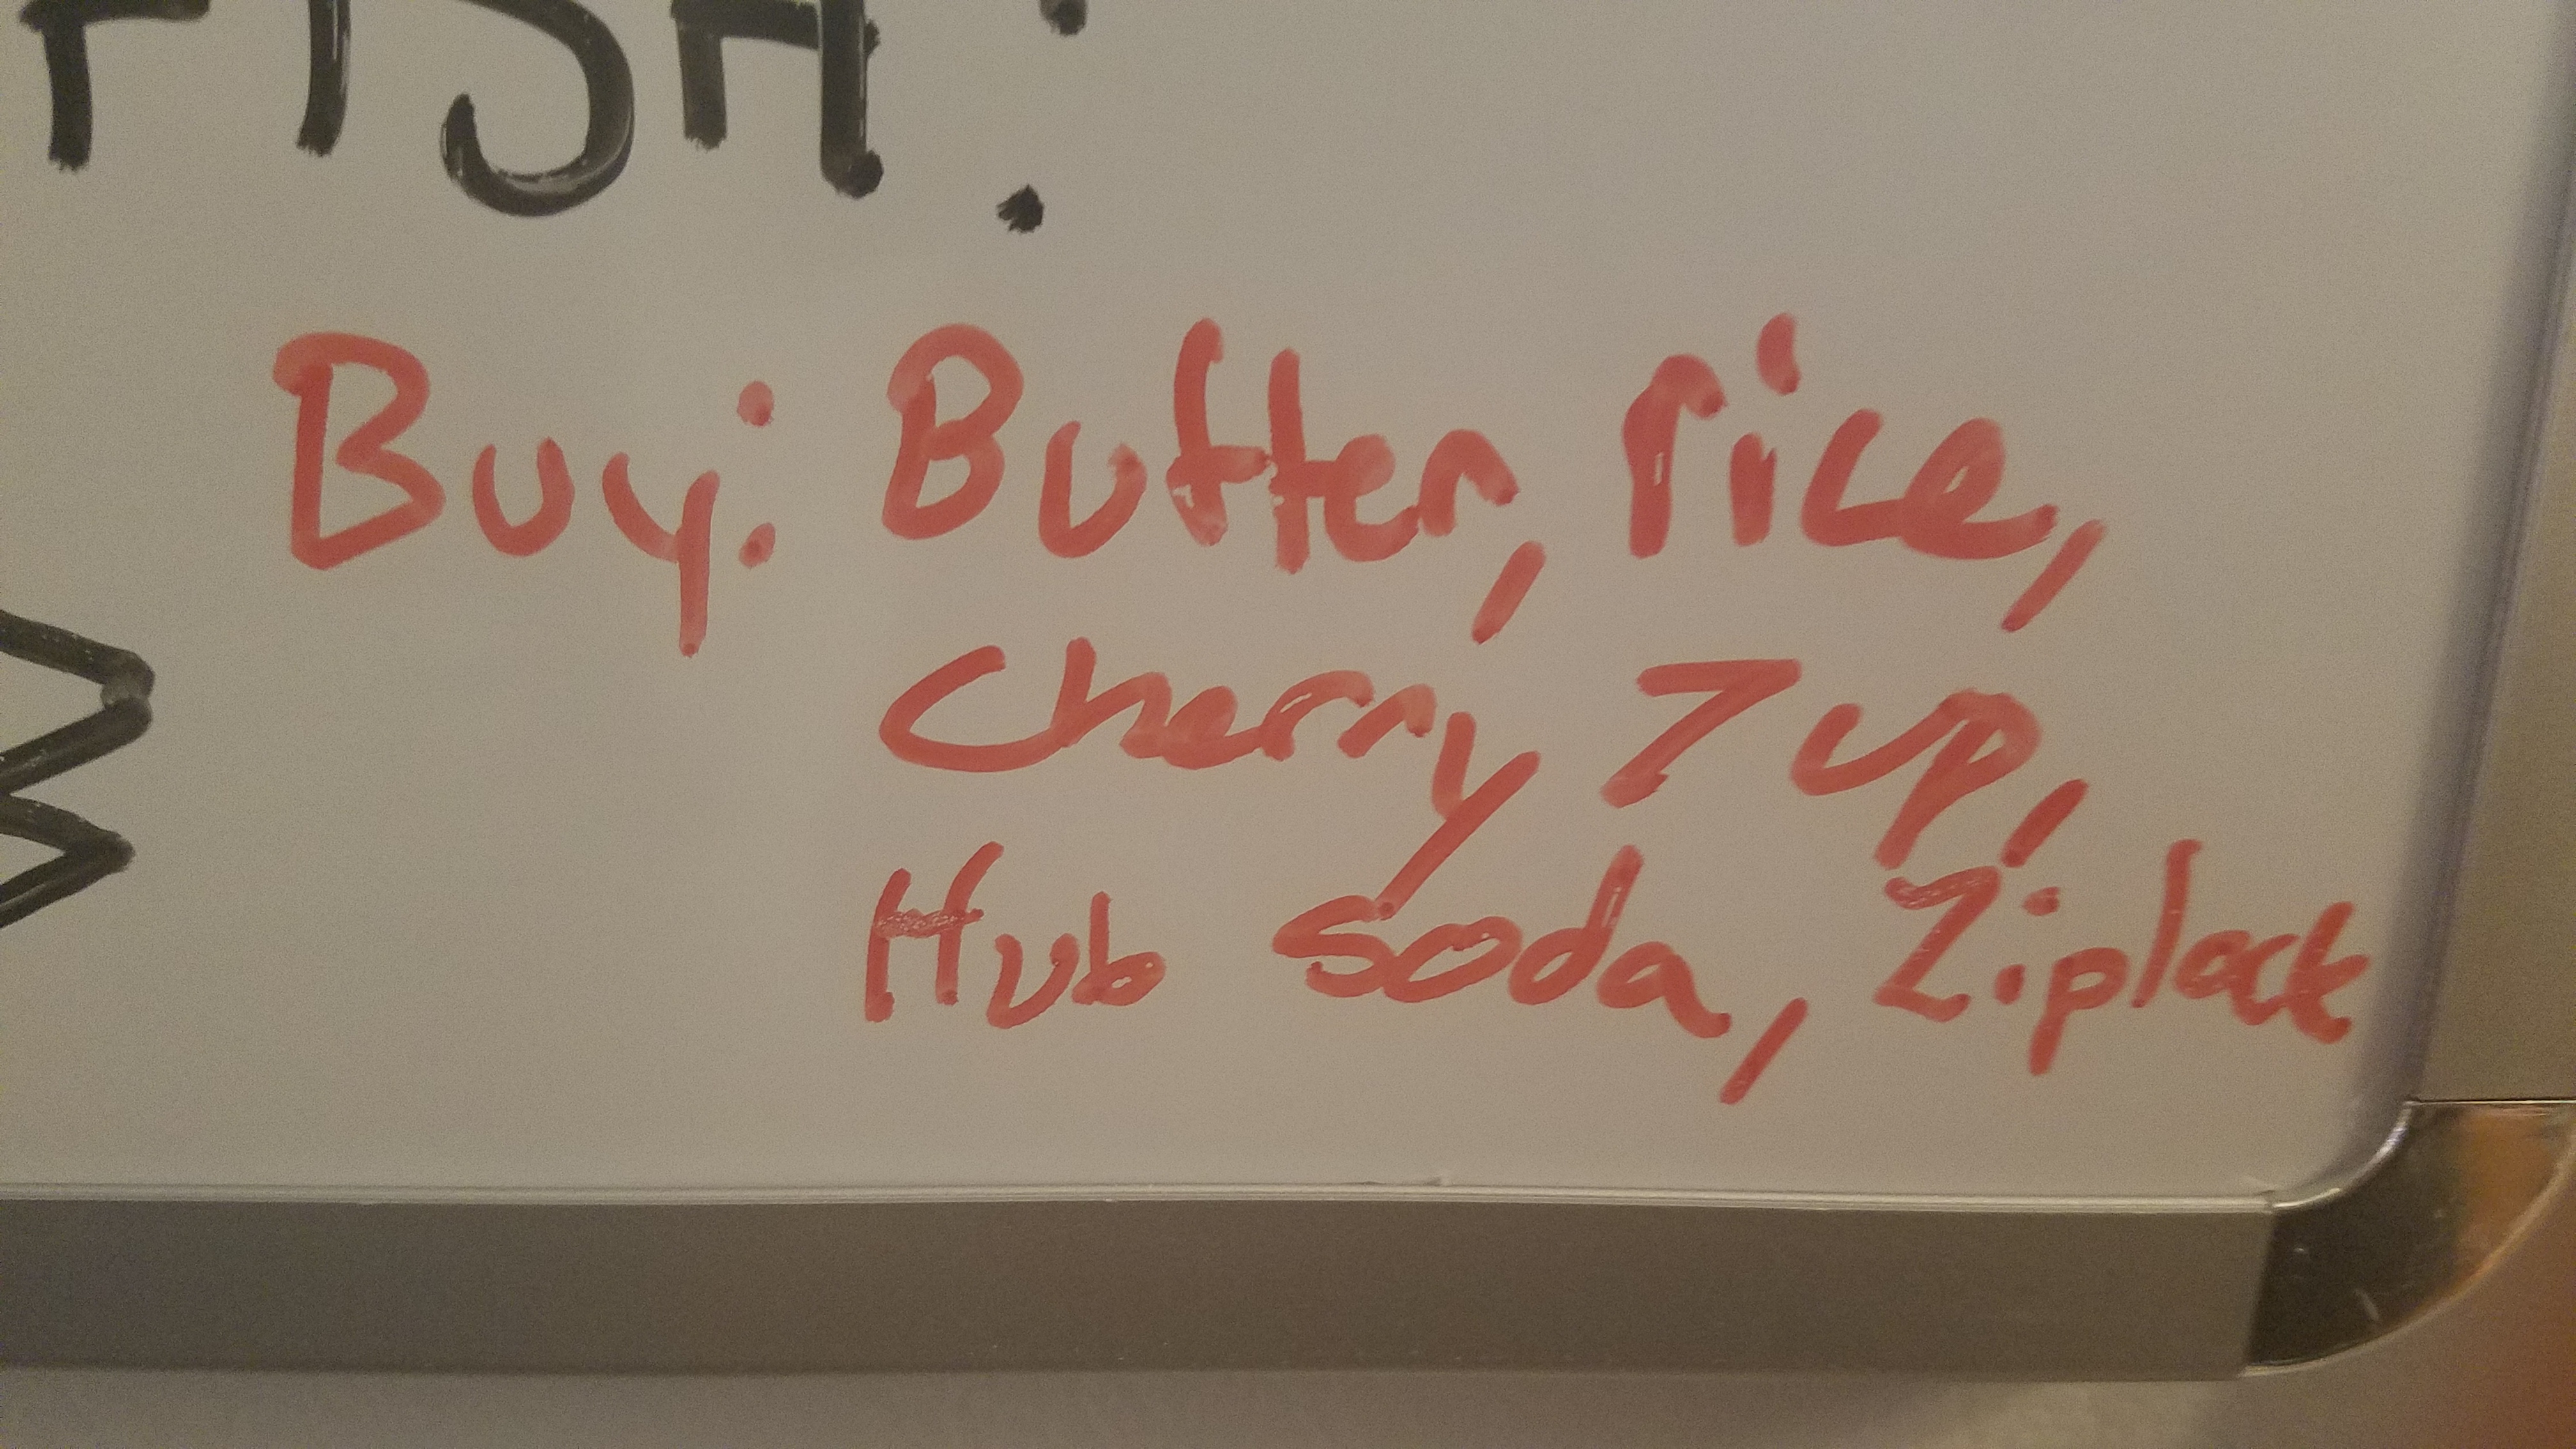 FISH:
Buy: Butter, rice,
Cherry 7up,
Hub soda, Ziplock